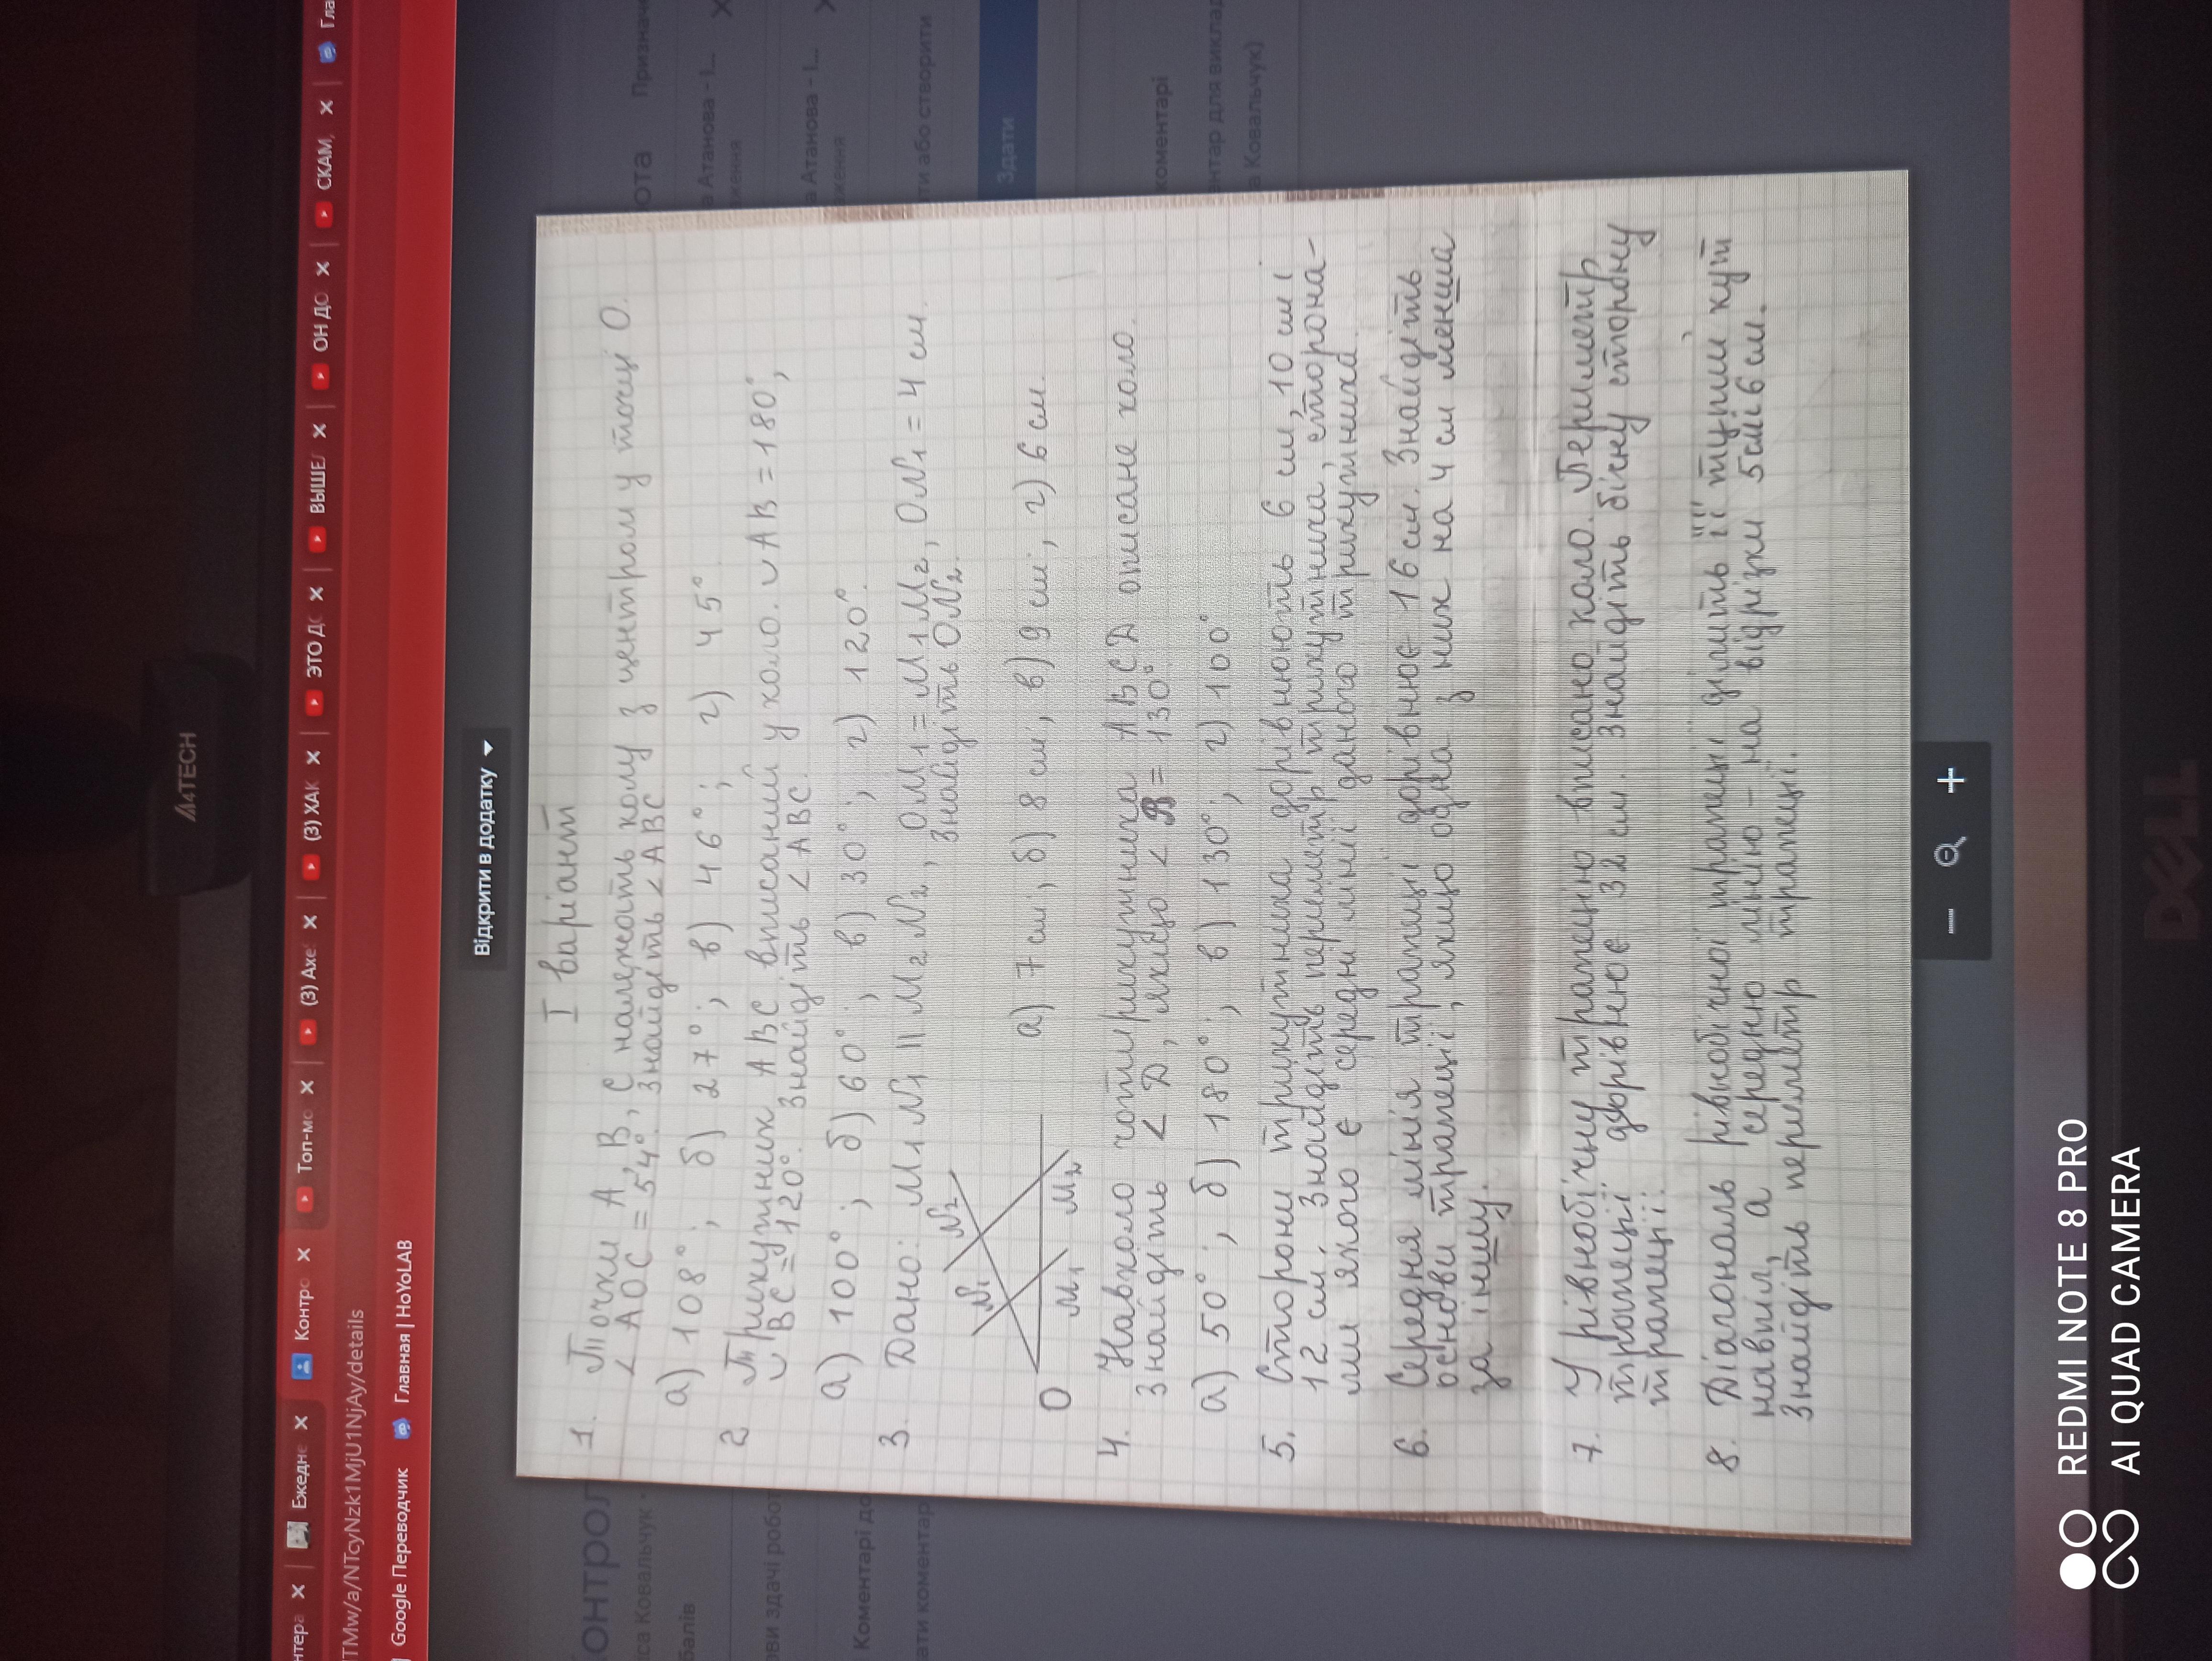 A4TECH
нтера ×
Ежедне ×
Контро ×
Топ-мо ×
(3) Ахе ×
(3) ХАК ×
ЭТО ДО ×
ВЫШЕЛ ×
ОН ДО ×
СКАМ, ×
Гла
TMw/a/NTcyNzk1MjU1NjAy/details
Google Переводчик
Главная | HoYoLAB
Відкрити в додатку
І варіант
1. Точки А, В, С належать колу з центром у точці О.
∠АОС = 54°. Знайдіть ∠АВС
а) 108°; б) 27°; в) 46°; г) 45°.
2 Трикутник АВС вписаний у коло. ◡АВ = 180°,
◡ВС = 120°. Знайдіть ∠АВС.
а) 100°; б) 60°; в) 30°; г) 120°.
3. Дано: M₁N₁ || M₂N₂, OM₁ = M₁M₂, ON₁ = 4 см.
Знайдіть ON₂.
N₁
N₂
O
M₁
M₂
а) 7 см; б) 8 см; в) 9 см; г) 6 см.
4. Навколо чотирикутника АВСД описане коло.
Знайдіть ∠Д, якщо ∠В = 130°.
а) 50°; б) 180°; в) 130°; г) 100°
5. Сторони трикутника дорівнюють 6 см, 10 см і
12 см. Знайдіть периметр трикутника, сторона-
ми якого є середні лінії даного трикутника.
6. Середня лінія трапеції дорівнює 16 см. Знайдіть
основи трапеції, якщо одна з них на 4 см менша
за іншу.
7. У рівнобічну трапецію вписано коло. Периметр
трапеції дорівнює 32 см. Знайдіть бічну сторону
трапеції.
8. Діагональ рівнобічної трапеції ділить її тупий кут
навпіл, а середню лінію - на відрізки 5см і 6 см.
Знайдіть периметр трапеції.
ОНТРОЛ
ОТА
Признач
іса Ковальчук
балів
а Атанова - І...
ження
ови здачі робот
а Атанова - І...
ження
Коментарі до
ти або створити
ати коментар
Здати
коментарі
ентар для виклад
а Ковальчук)
DELL
REDMI NOTE 8 PRO
AI QUAD CAMERA